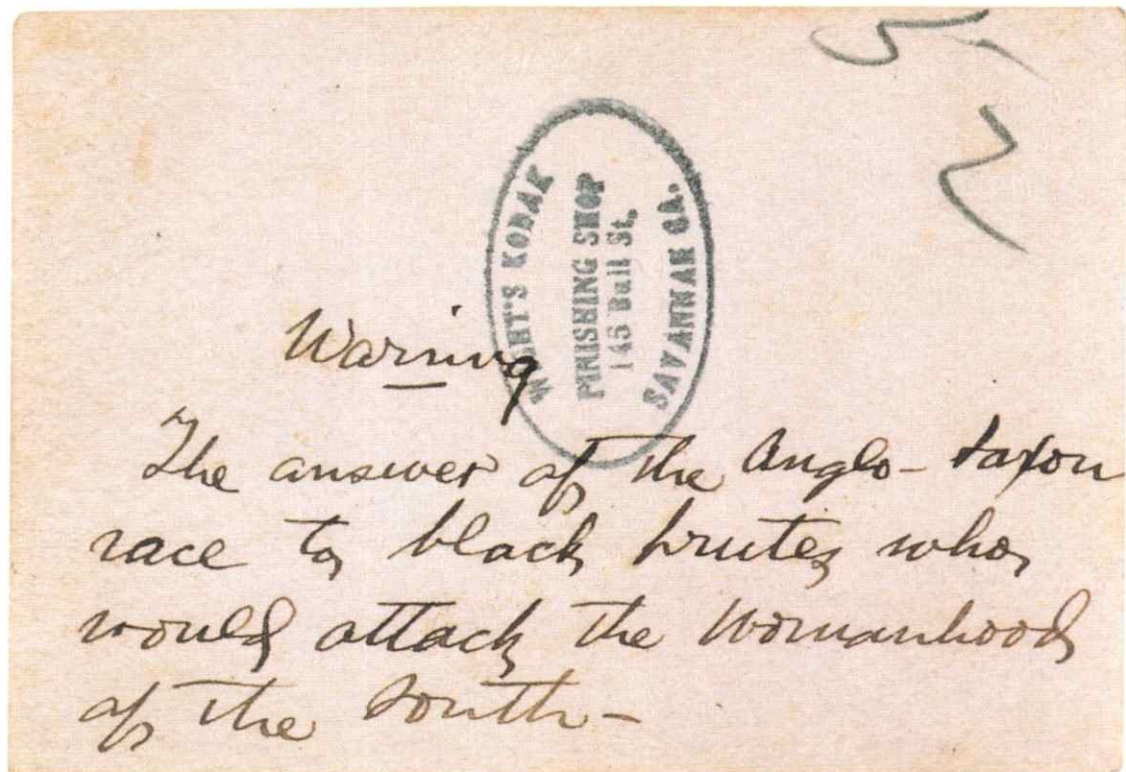 KODAK
FINISHING SHOP
145 Bull St.
SAVANNAH GA.
Warning
The answer of the Anglo-Saxon
race to black brutes who
would attack the Womanhood
of the South-